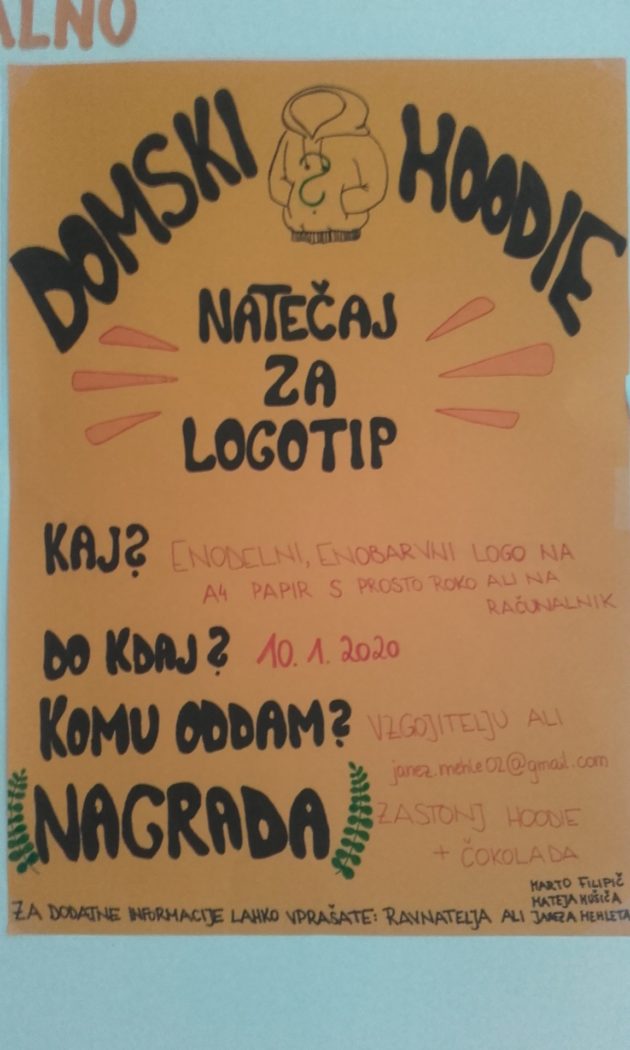 ALNO
DOMSKI HOODIE
NATEČAJ
ZA
LOGOTIP
KAJ? ENODELNI, ENOBARVNI LOGO NA
A4 PAPIR S PROSTO ROKO ALI NA
RAČUNALNIK
DO KDAJ? 10. 1. 2020
KOMU ODDAM? VZGOJITELJU ALI
janez.mehle02@gmail.com
NAGRADA ZASTONJ HOODIE
+ ČOKOLADA
ZA DODATNE INFORMACIJE LAHKO VPRAŠATE: RAVNATELJA ALI
MARTO FILIPIČ
MATEJA HUŠIČA
JANEZA MEHLETA